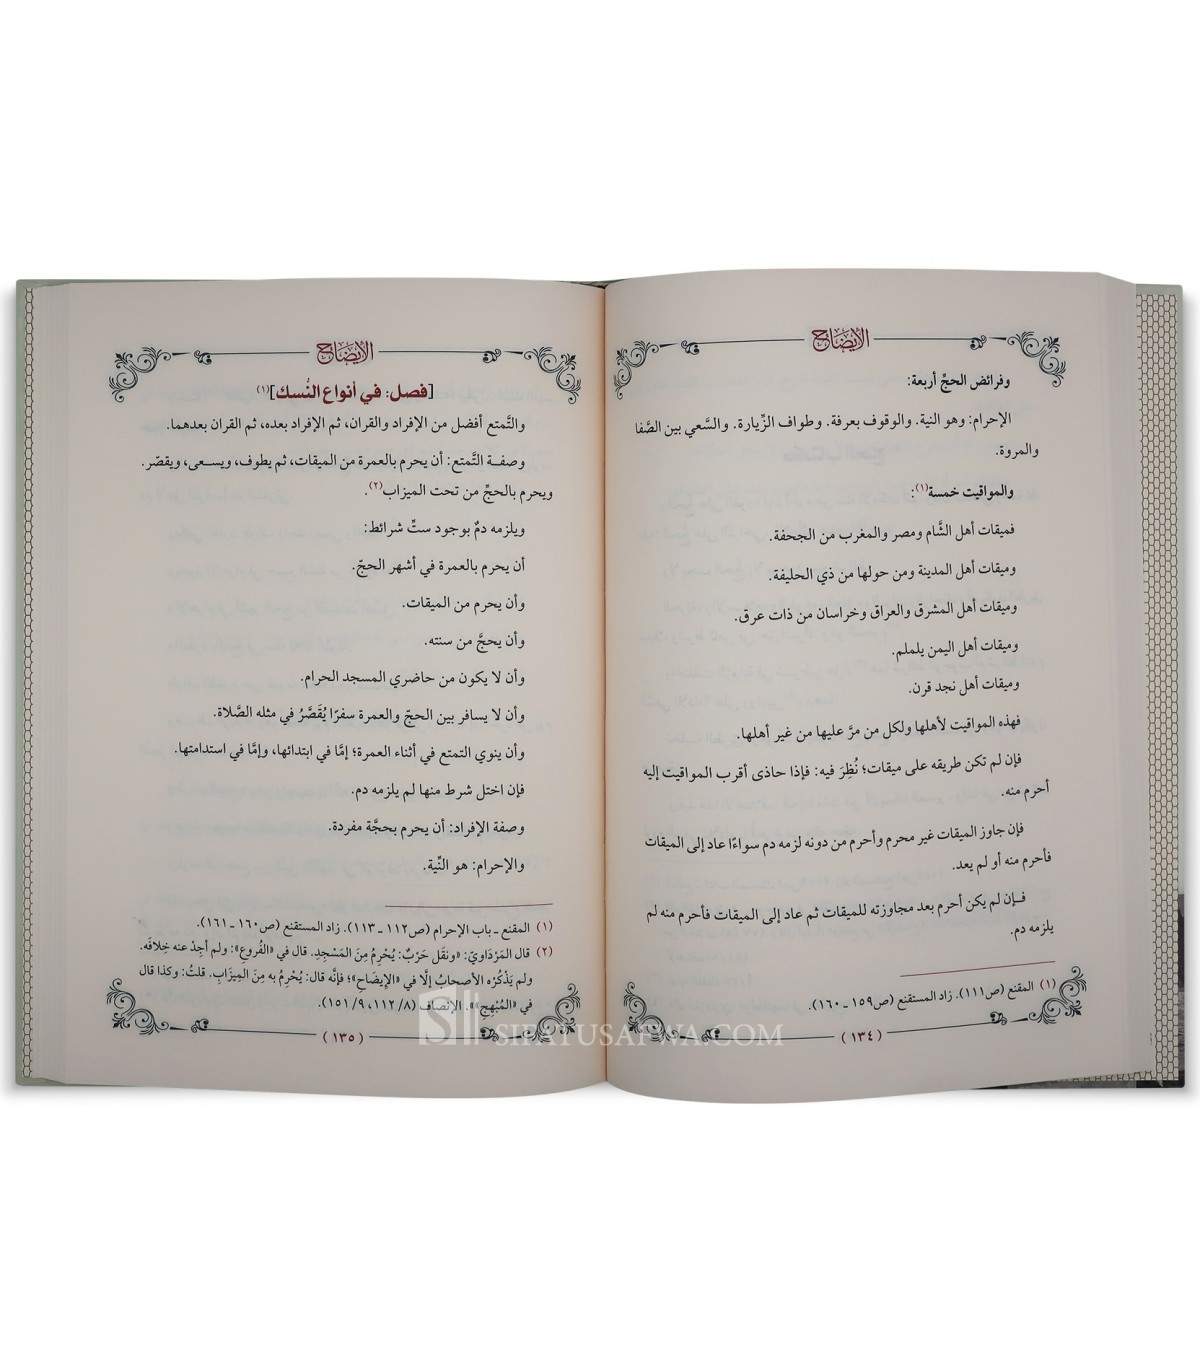 الإيضاح
وفرائض الحجِّ أربعة:
الإحرام: وهو النية. والوقوف بعرفة. وطواف الزِّيارة. والسَّعي بين الصَّفا
والمروة.
والمواقيت خمسة(١):
فميقات أهل الشَّام ومصر والمغرب من الجحفة.
وميقات أهل المدينة ومن حولها من ذي الحليفة.
وميقات أهل المشرق والعراق وخراسان من ذات عرق.
وميقات أهل اليمن يلملم.
وميقات أهل نجد قرن.
فهذه المواقيت لأهلها ولكل من مرَّ عليها من غير أهلها.
فإن لم تكن طريقه على ميقات؛ نُظِرَ فيه: فإذا حاذى أقرب المواقيت إليه
أحرم منه.
فإن جاوز الميقات غير محرم وأحرم من دونه لزمه دم سواءًا عاد إلى الميقات
فأحرم منه أو لم يعد.
فإن لم يكن أحرم بعد مجاوزته للميقات ثم عاد إلى الميقات فأحرم منه لم
يلزمه دم.
(١) المقنع (ص١١١). زاد المستقنع (ص١٥٩ ـ ١٦٠).
(١٣٤)
الإيضاح
[فصل: في أنواع النُّسك](١)
والتَّمتع أفضل من الإفراد والقران، ثم الإفراد بعده، ثم القران بعدهما.
وصفة التَّمتع: أن يحرم بالعمرة من الميقات، ثم يطوف، ويسعى، ويقصّر.
ويحرم بالحجِّ من تحت الميزاب(٢).
ويلزمه دمٌ بوجود ستِّ شرائط:
أن يحرم بالعمرة في أشهر الحجّ.
وأن يحرم من الميقات.
وأن يحجَّ من سنته.
وأن لا يكون من حاضري المسجد الحرام.
وأن لا يسافر بين الحجّ والعمرة سفرًا يُقَصَّرُ في مثله الصَّلاة.
وأن ينوي التمتع في أثناء العمرة؛ إمَّا في ابتدائها، وإمَّا في استدامتها.
فإن اختل شرط منها لم يلزمه دم.
وصفة الإفراد: أن يحرم بحجَّة مفردة.
والإحرام: هو النِّية.
(١) المقنع ـ باب الإحرام (ص١١٢ ـ ١١٣). زاد المستقنع (ص١٦٠ ـ ١٦١).
(٢) قال المَرْدَاويّ: «ونقَل حَرْبٌ: يُحْرِمُ مِنَ المَسْجِدِ. قال في «الفُروعِ»: ولم أجِدْ عنه خِلافَه.
ولم يَذْكُرْه الأصحابُ إلَّا في «الإيضَاحِ»؛ فإنَّه قال: يُحْرِمُ به مِنَ المِيزَابِ. قلتُ: وكذا قال
في «المُبْهِجِ»». الإنصاف (١١٢/٨، ١٥١/٩).
(١٣٥)
SIFATUSAFWA.COM